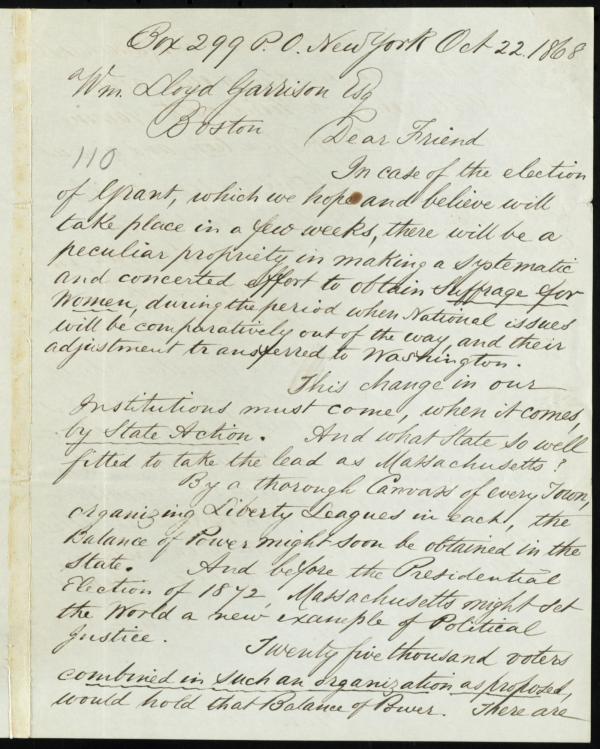 Box 299 P.O. New York Oct 22. 1868
Wm. Lloyd Garrison Esq
Boston Dear Friend
110
In case of the election
of Grant, which we hope and believe will
take place in a few weeks, there will be a
peculiar propriety in making a systematic
and concerted effort to obtain suffrage for
Women, during the period when National issues
will be comparatively out of the way, and their
adjustment transferred to Washington.
This change in our
Institutions must come, when it comes,
by State Action. And what State so well
fitted to take the lead as Massachusetts?
By a thorough Canvass of every Town,
organizing Liberty Leagues in each, the
Balance of Power might soon be obtained in the
State. And before the Presidential
Election of 1872, Massachusetts might set
the World a new example of Political
Justice. Twenty five thousand voters
combined in such an organization as proposed,
would hold that Balance of Power. There are